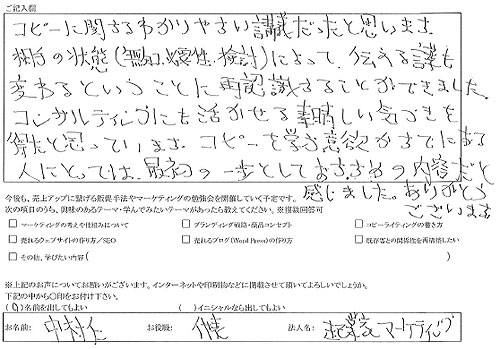 ご記入欄
コピーに関するわかりやすい講義だったと思います。
相手の状態(無知、必要性、検討)によって、伝える話も
変わるということに再認識することができました。
コンサルティングにも活かせる素晴しい気づきを
得たと思っています。コピーを学ぶ意欲がすでにある
人にとっては、最初の一歩としておすすめの内容だと
感じました。ありがとう
ございます
今後も、売上アップに繋げる販促手法やマーケティングの勉強会を開催していく予定です。
次の項目のうち、興味のあるテーマ・学んでみたいテーマがあったら教えてください。※複数回答可
□ マーケティングの考えや仕組みについて □ ブランディング戦略・商品コンセプト □ コピーライティングの書き方
□ 売れるウェブサイトの作り方/SEO □ 売れるブログ(Word Press)の作り方 □ 既存客との関係性を再構築したい
□ その他、学びたい内容( )
※上記のお声についてお願いがございます。インターネットや印刷物などに掲載させて頂いてよろしいでしょうか。
下記の中から〇印をお付け下さい。
(〇)名前を出してもよい ( )イニシャルなら出してもよい
お名前: 中村仁 お役職: 代表 法人名: 起業家マーケティング